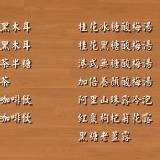 黑木耳 桂花冰糖酸梅湯
黑木耳 桂花黑糖酸梅湯
茶半糖 港式無糖酸梅湯
茶 加倍養顏酸梅湯
咖啡飲 阿里山珠露冷泡
咖啡飲 紅棗枸杞菊花露
黑糖老薑露